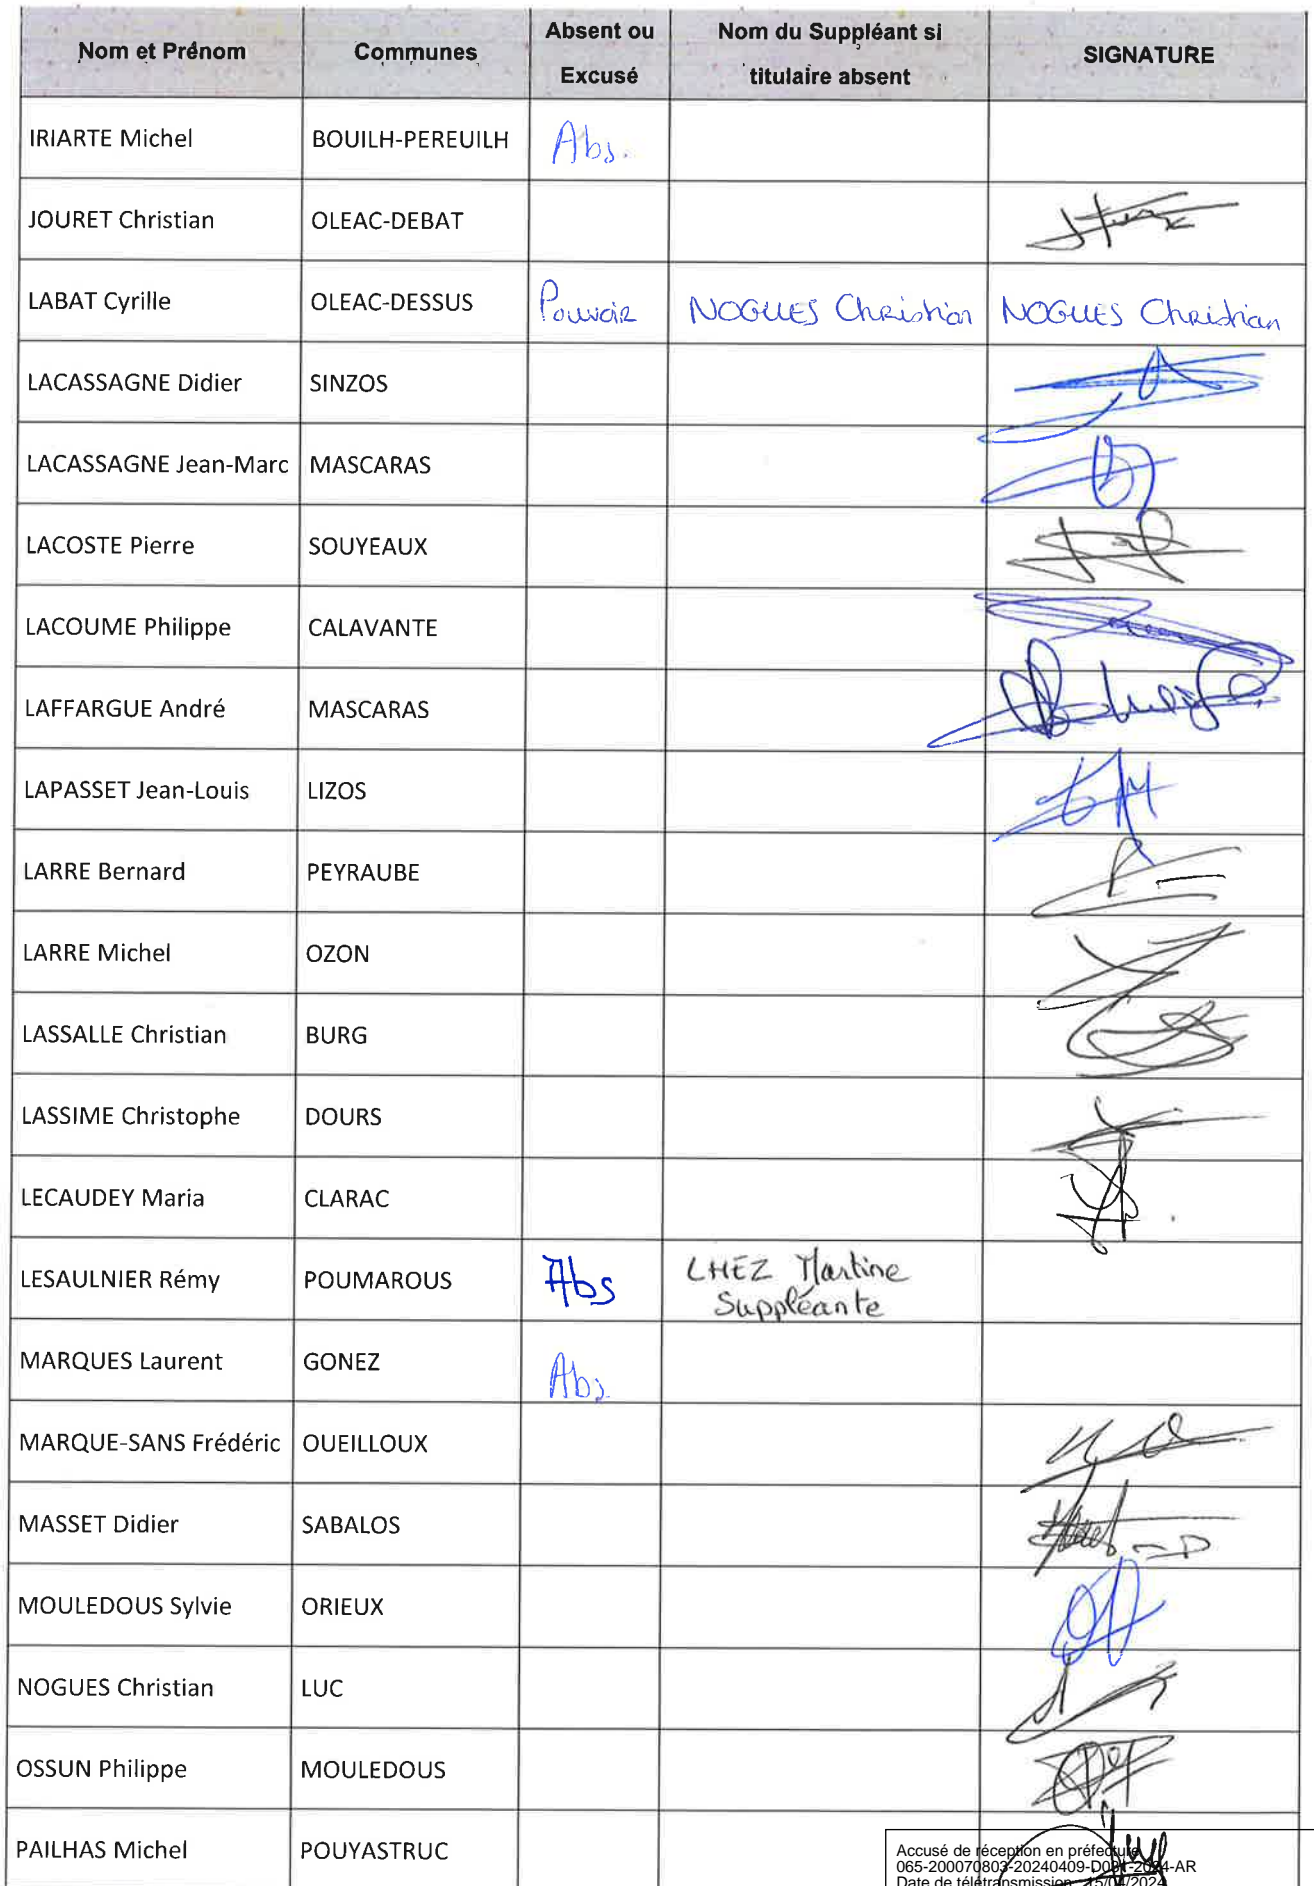 Nom et Prénom Communes Absent ou Excusé Nom du Suppléant si titulaire absent SIGNATURE
IRIARTE Michel BOUILH-PEREUILH Abs.
JOURET Christian OLEAC-DEBAT
LABAT Cyrille OLEAC-DESSUS Pouvoir NOGUES Christian NOGUES Christian
LACASSAGNE Didier SINZOS
LACASSAGNE Jean-Marc MASCARAS
LACOSTE Pierre SOUYEAUX
LACOUME Philippe CALAVANTE
LAFFARGUE André MASCARAS
LAPASSET Jean-Louis LIZOS
LARRE Bernard PEYRAUBE
LARRE Michel OZON
LASSALLE Christian BURG
LASSIME Christophe DOURS
LECAUDEY Maria CLARAC
LESAULNIER Rémy POUMAROUS Abs LHEZ Martine Suppléante
MARQUES Laurent GONEZ Abs.
MARQUE-SANS Frédéric OUEILLOUX
MASSET Didier SABALOS
MOULEDOUS Sylvie ORIEUX
NOGUES Christian LUC
OSSUN Philippe MOULEDOUS
PAILHAS Michel POUYASTRUC
Accusé de réception en préfecture
065-200070803-20240409-D031-2024-AR
Date de télétransmission : 15/04/2024